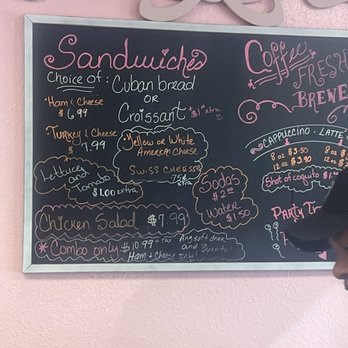 Sandwiches
Choice of: Cuban bread
or
Croissant +$1 extra
• Ham & Cheese
$6.99
• Turkey & Cheese
$7.99
Yellow or White
American Cheese
Swiss Cheese
.75¢
extra
Lettuce and
Tomato
$1.00 extra
Sodas
$2
Water
$1.50
Chicken Salad $7.99
* Combo only $10.99 + Tax Any soft drink
and
Ham & Cheese only
Coffee
Fresh
Brewe
Cappuccino • Latte
8 oz $3.50
12 oz $3.90
8 oz
12 oz
Shot of coquito $1.
Party Tr